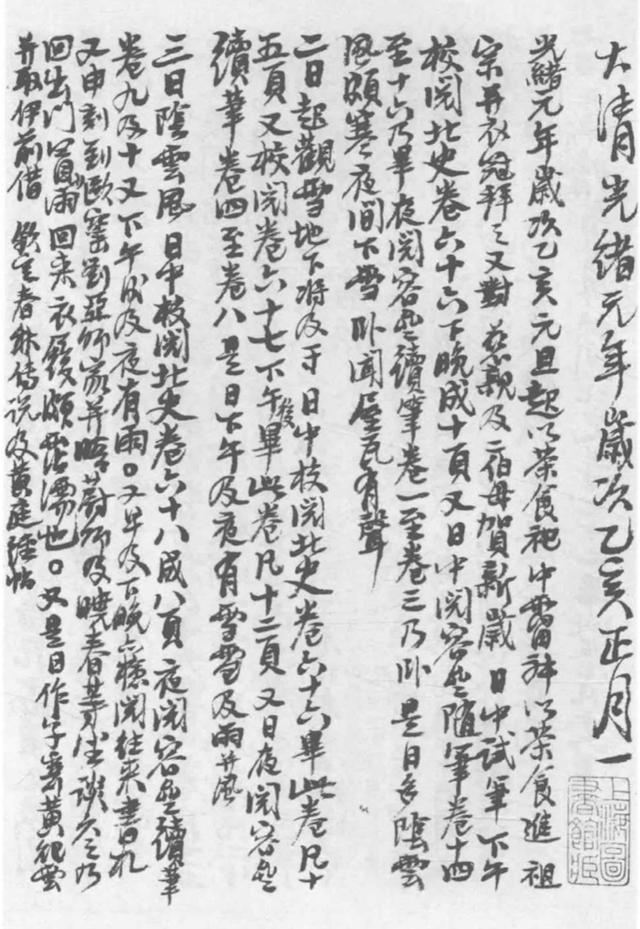 大清光緒元年歲次乙亥正月一
光緒元年歲次乙亥元旦起以茶食祀中霤神以茶食進 祖
宗并衣冠拜之又對 慈親及二伯母賀新歲 日中試筆下午
校閱北史卷六十六下晚成十頁又日中閱容齋隨筆卷十四
至十六乃畢夜閱容齋續筆卷一至卷三乃卧是日多陰雲
風頗寒夜間下雪卧聞屋瓦有聲
二日起觀雪地下將及寸日中校閱北史卷六十六畢此卷凡十
五頁又校閱卷六十七下午後畢此卷凡十二頁又日夜閱容齋
續筆卷四至卷八是日下午及夜有雪雪及雨并風
三日陰雲風日中校閱北史卷六十八成八頁夜閱容齋續筆
卷九及十又下午及夜有雨又早及下晚檢閱往來書札
又申刻到歐窰劉亞師家并晤蔚師及曉春等坐談久之乃
回出門冒雨回來衣履頗霑濡也又是日作字寄黃
并取伊前借 欽定春秋傳說及黃庭經帖
上海圖書館藏